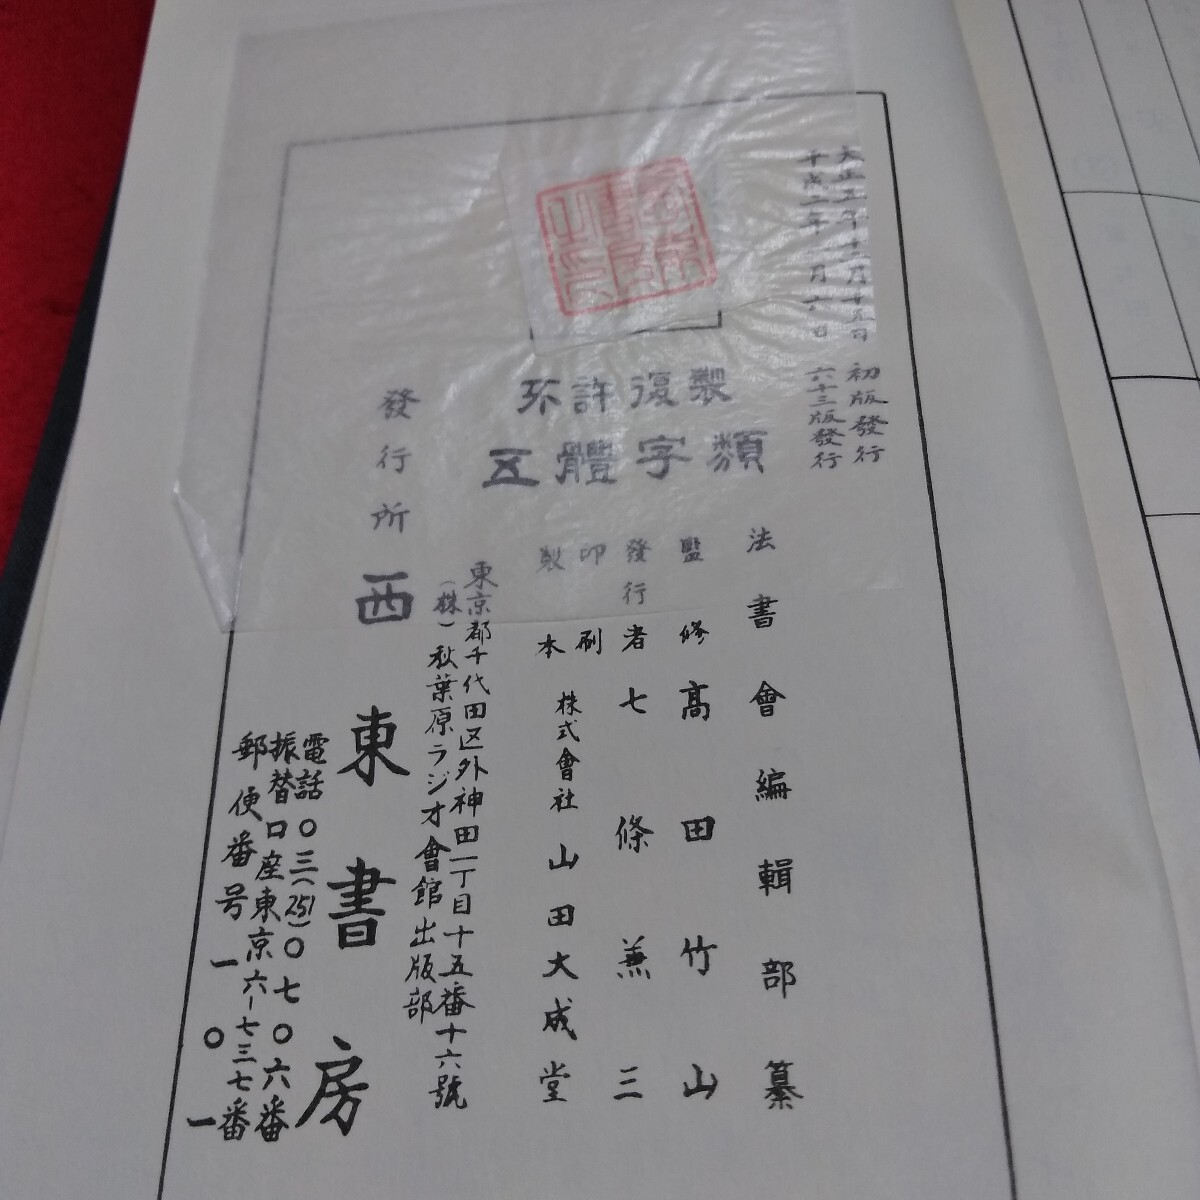 大正五年十二月十五日 初版發行
平成二年一月六日 六十三版發行
不許復製
五體字類
法書會編輯部纂
監修 高田竹山
發行者 七條兼三
印刷
製本
株式會社 山田大成堂
東京都千代田区外神田一丁目十五番十六號
(株)秋葉原ラジオ會館出版部
發行所 西東書房
電話〇三(251)〇七〇六番
振替口座東京六-七三七番
郵便番号一〇一